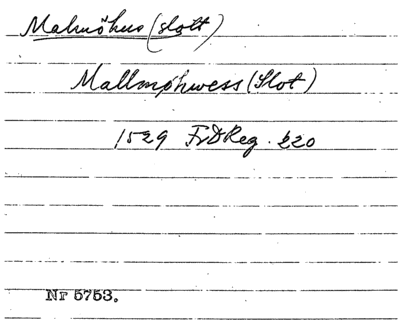 Malmöhus (slott)
Mallmøhwess (Slot)
1529 FrdReg. 220
Nr 5753.